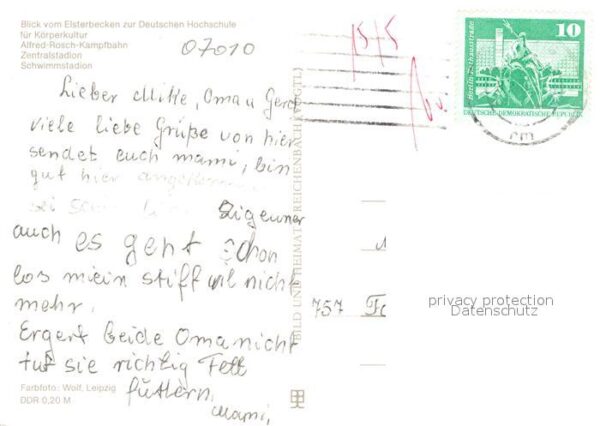 Blick vom Elsterbecken zur Deutschen Hochschule
für Körperkultur
Alfred-Rosch-Kampfbahn
Zentralstadion
Schwimmstadion
07010
15+5
10
DEUTSCHE DEMOKRATISCHE REPUBLIK
Lieber Mike, Oma u Gerd
viele liebe Grüße von hier
sendet euch mami, bin
gut hier angekommen
sei Zigeuner
auch es geht schon
los mein stift wil nicht
mehr.
Ergert beide Oma nicht
tut sie richtig Fett
füttern
Mami,
BILD UND HEIMAT REICHENBACH (VOGTL)
757
privacy protection
Datenschutz
Farbfoto: Wolf, Leipzig
DDR 0,20 M